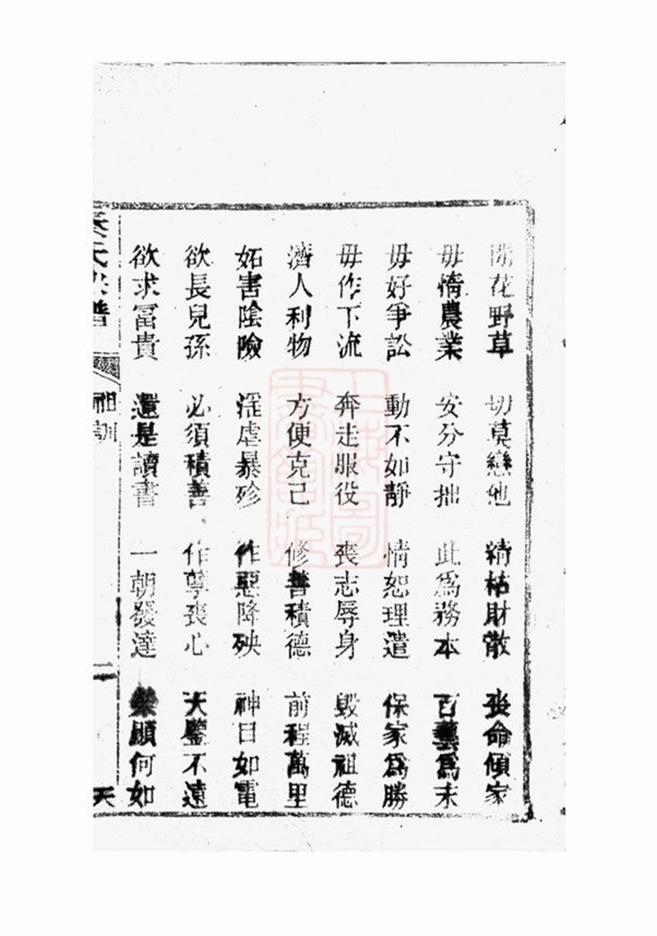 閒花野草 切莫戀他 精枯財散 喪命傾家
毋惰農業 安分守拙 此爲務本 百藝爲末
毋好爭訟 動不如靜 情恕理遣 保家爲勝
毋作下流 奔走服役 喪志辱身 毀滅祖德
濟人利物 方便克己 修善積德 前程萬里
妬害陰險 淫虐暴殄 作惡降殃 神目如電
欲長兒孫 必須積善 作孽喪心 天鑒不遠
欲求富貴 還是讀書 一朝發達 榮顯何如
氏 譜 祖訓 二 天